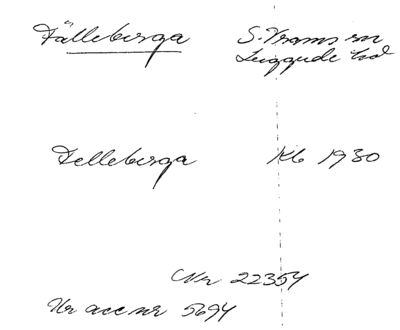 Fälleberga S. Vrams sn
Luggude hd
Felleberga Kb 1930
Nr 22354
Ur acc nr 5694